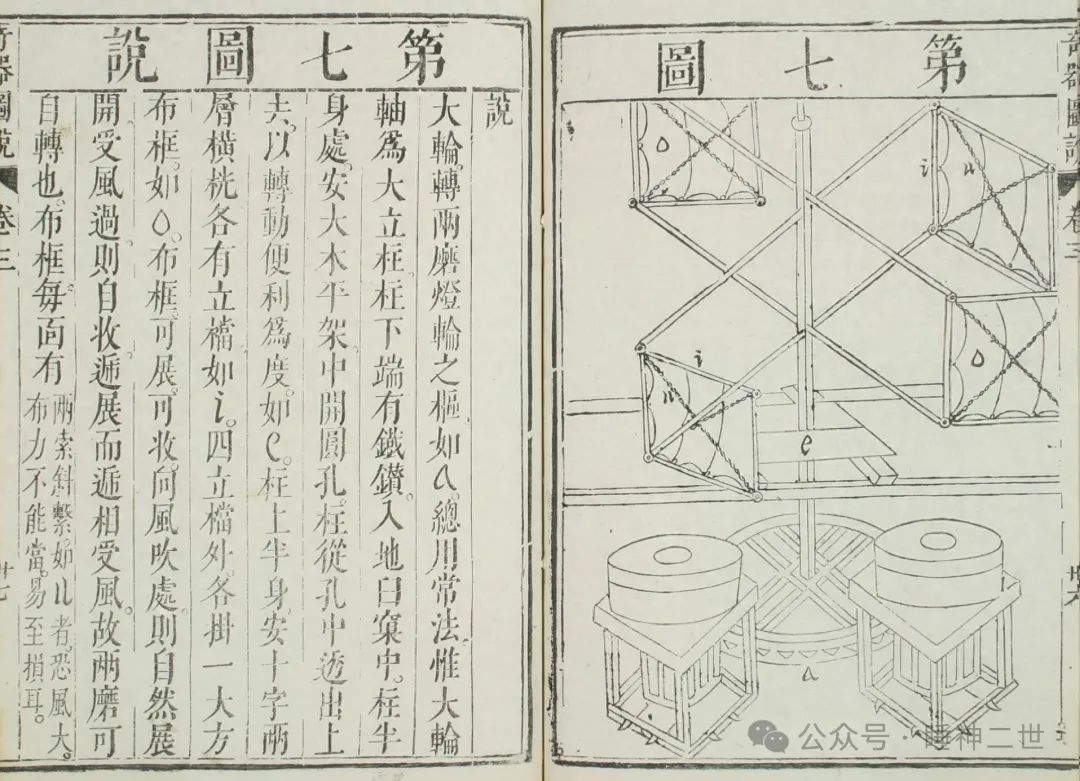 奇器圖說
卷三
第七圖
o
i
u
i
u
o
e
a
第七圖說
說
大輪。轉兩磨燈輪之樞如a。總用常法。惟大輪
軸爲大立柱。柱下端有鐵鑽。入地臼窠中。柱半
身處。安大木平架。中開圓孔。柱從孔中透出上
去。以轉動便利爲度。如e。柱上半身。安十字兩
層橫桄各有立檔如i。四立檔外。各掛一大方
布框。如o。布框可展。可收。向風吹處。則自然展
開。受風過。則自收。遞展而遞相受風。故兩磨可
自轉也。布框每面有
兩索斜繫。如u者。恐風大。
布力不能當。易至損耳。
奇器圖說
卷三
廿七
公众号·睡神二世